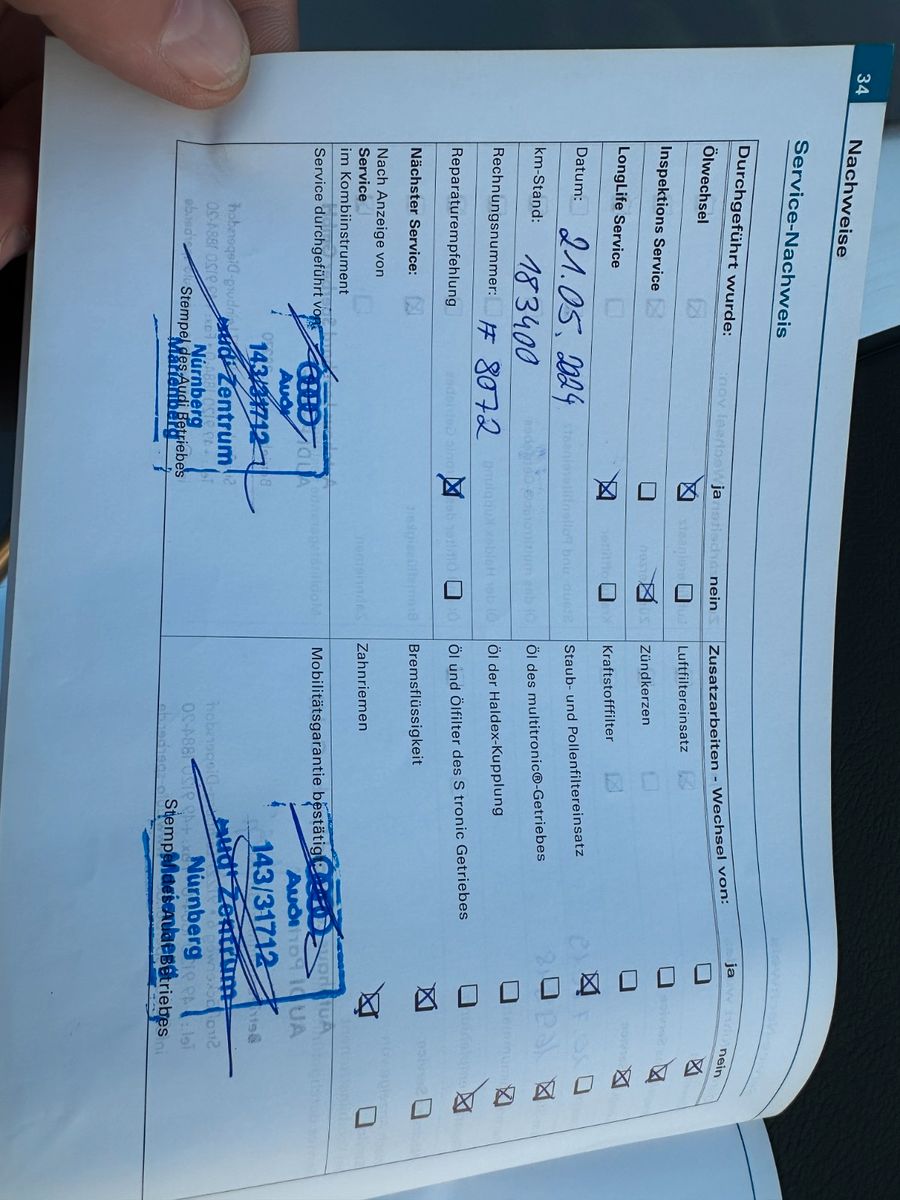 34
Nachweise
Service-Nachweis
Durchgeführt wurde: ja nein
Ölwechsel
Inspektions Service
LongLife Service
Datum: 21.05.2024
km-Stand: 183400
Rechnungsnummer: # 8072
Reparaturempfehlung
Nächster Service:
Nach Anzeige von
Service
im Kombiinstrument
Service durchgeführt von:
Audi
143/31712
Audi Zentrum
Nürnberg
Marienberg
Stempel des Audi Betriebes
Zusatzarbeiten - Wechsel von: ja nein
Luftfiltereinsatz
Zündkerzen
Kraftstofffilter
Staub- und Pollenfiltereinsatz
Öl des multitronic®-Getriebes
Öl der Haldex-Kupplung
Öl und Ölfilter des S tronic Getriebes
Bremsflüssigkeit
Zahnriemen
Mobilitätsgarantie bestätigt:
Audi
143/31712
Audi Zentrum
Nürnberg
Marienberg
Stempel des Audi Betriebes